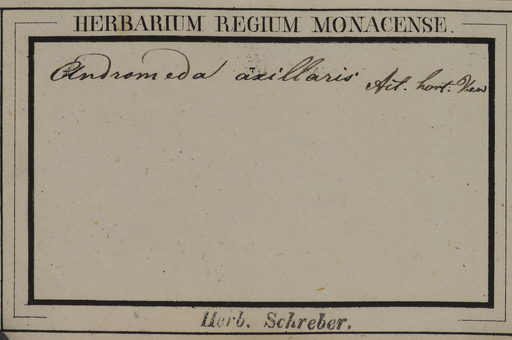 HERBARIUM REGIUM MONACENSE.
Andromeda axillaris Ait. hort. Kew
Herb. Schreber.